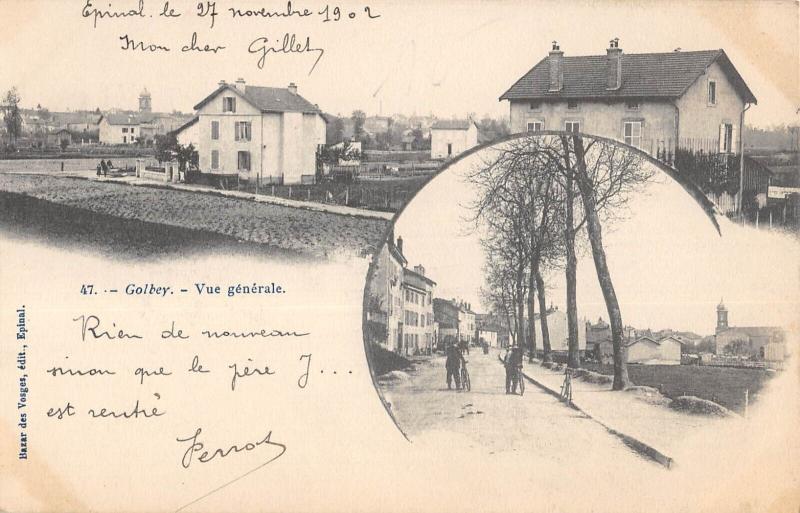 Epinal. le 27 novembre 1902
Mon cher Gillet,
47. - Golbey. - Vue générale.
Rien de nouveau
sinon que le père J...
est rentré
Perrot
Bazar des Vosges, édit., Epinal.